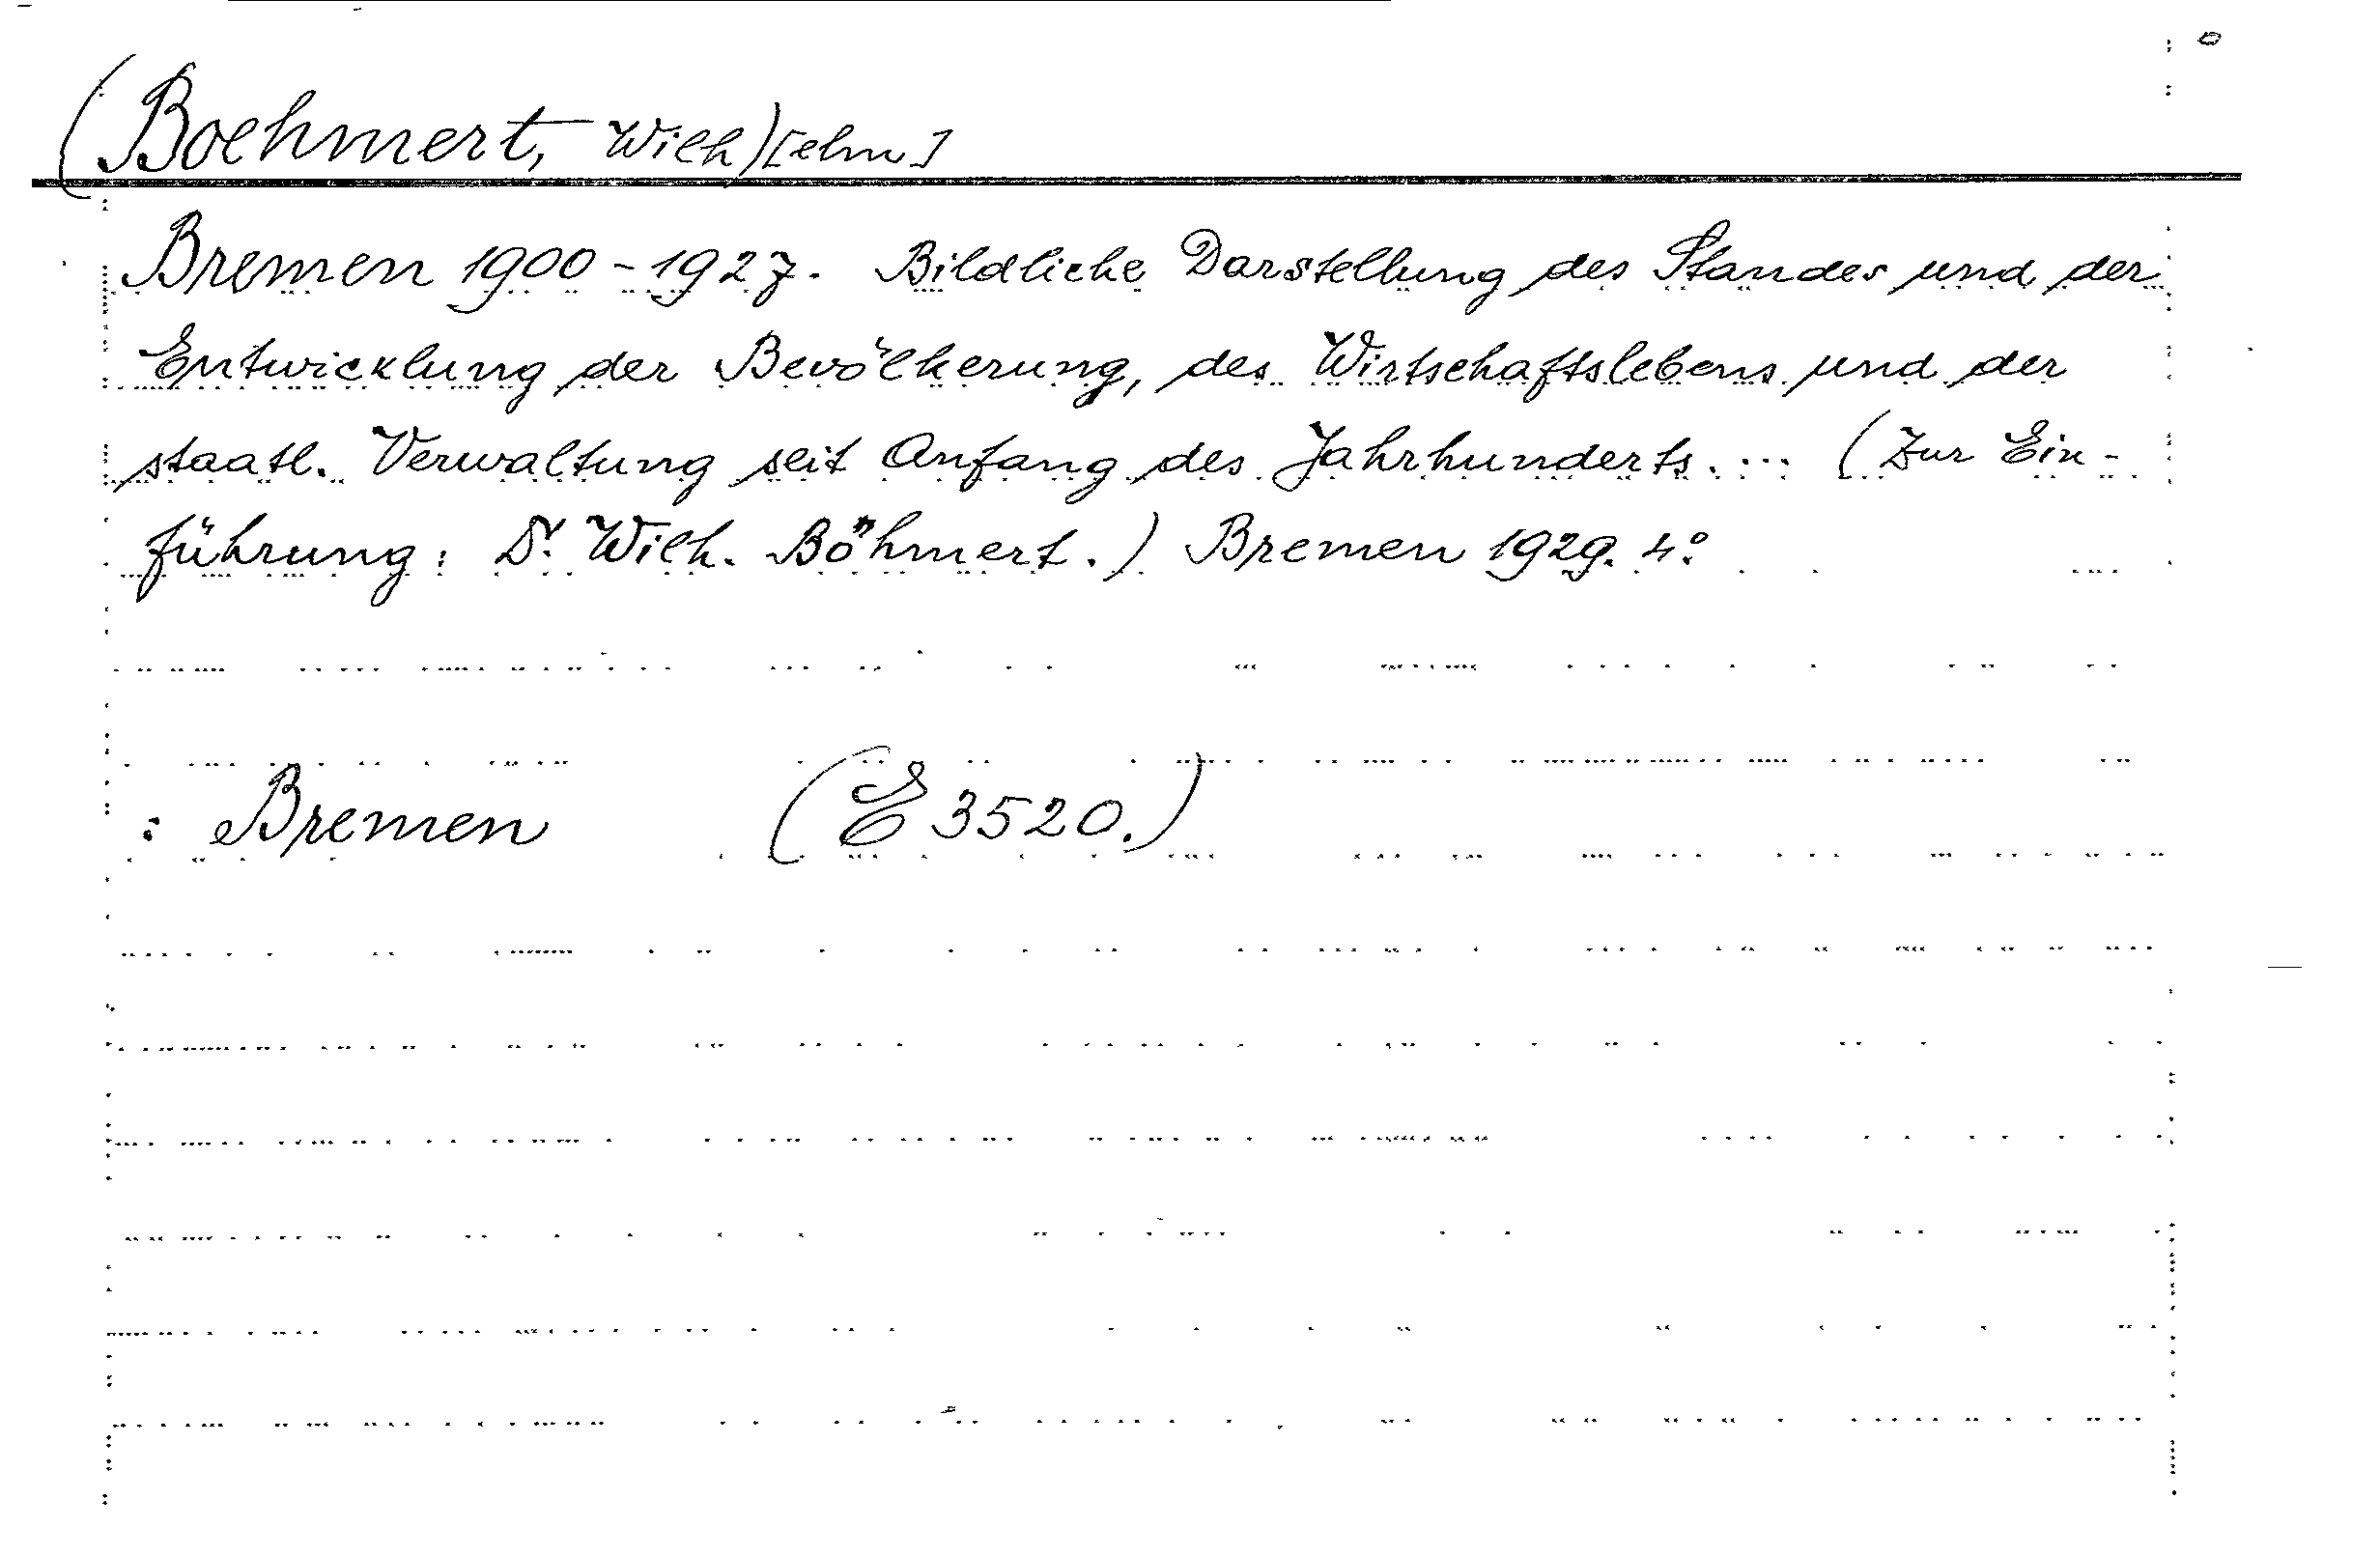 (Boehmert, Wilh)[elm]
Bremen 1900-1927. Bildliche Darstellung des Standes und der
Entwicklung der Bevölkerung, des Wirtschaftslebens und der
staatl. Verwaltung seit Anfang des Jahrhunderts. ... (Zur Ein-
führung: Dr. Wilh. Böhmert.) Bremen 1929. 4°.
: Bremen (E 3520.)